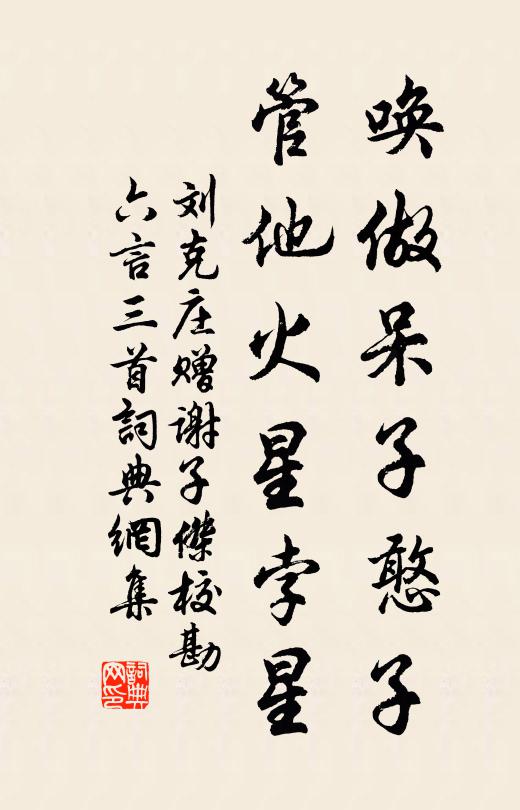 唤做呆子憨子
管他火星孛星
刘克庄赠谢子傑校勘
六言三首詞典網集
詞典
网印